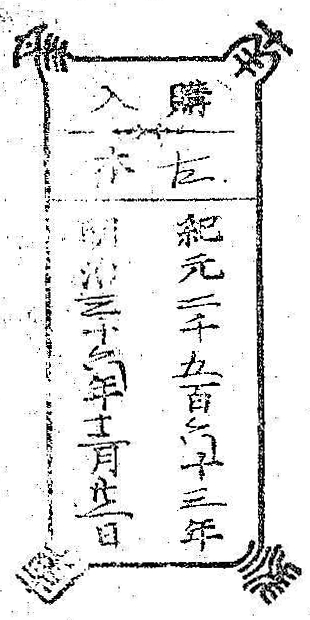 購入
紀元二千五百六十三年
明治三十六年十二月